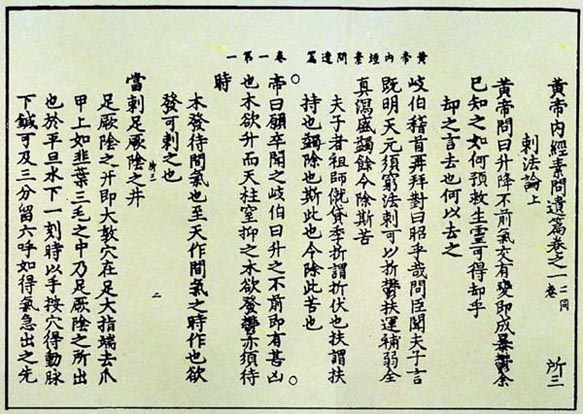 黃帝内經素問遺篇卷之一 二同卷 所三
刺法論上
黃帝問曰升降不前氣交有變即成暴鬱余
已知之如何預救生靈可得却乎
却之言去也何以去之
岐伯稽首再拜對曰昭乎哉問臣聞夫子言
既明天元須窮法刺可以折鬱扶運補弱全
真瀉盛蠲餘令除斯苦
夫子者祖師僦貸季折謂折伏也扶謂扶
持也蠲除也斯此也令除此苦也
黃帝内經素問遺篇 卷一第一
帝曰願卒聞之岐伯曰升之不前即有甚凶
也木欲升而天柱窒抑之木欲發鬱亦須待
時
木發待間氣也至天作間氣之時作也欲
發可刺之也
二
當刺足厥陰之井
足厥陰之井即大敦穴在足大指端去爪
甲上如韭葉三毛之中乃足厥陰之所出
也於平旦水下一刻時以手按穴得動脉
下鍼可及三分留六呼如得氣急出之先